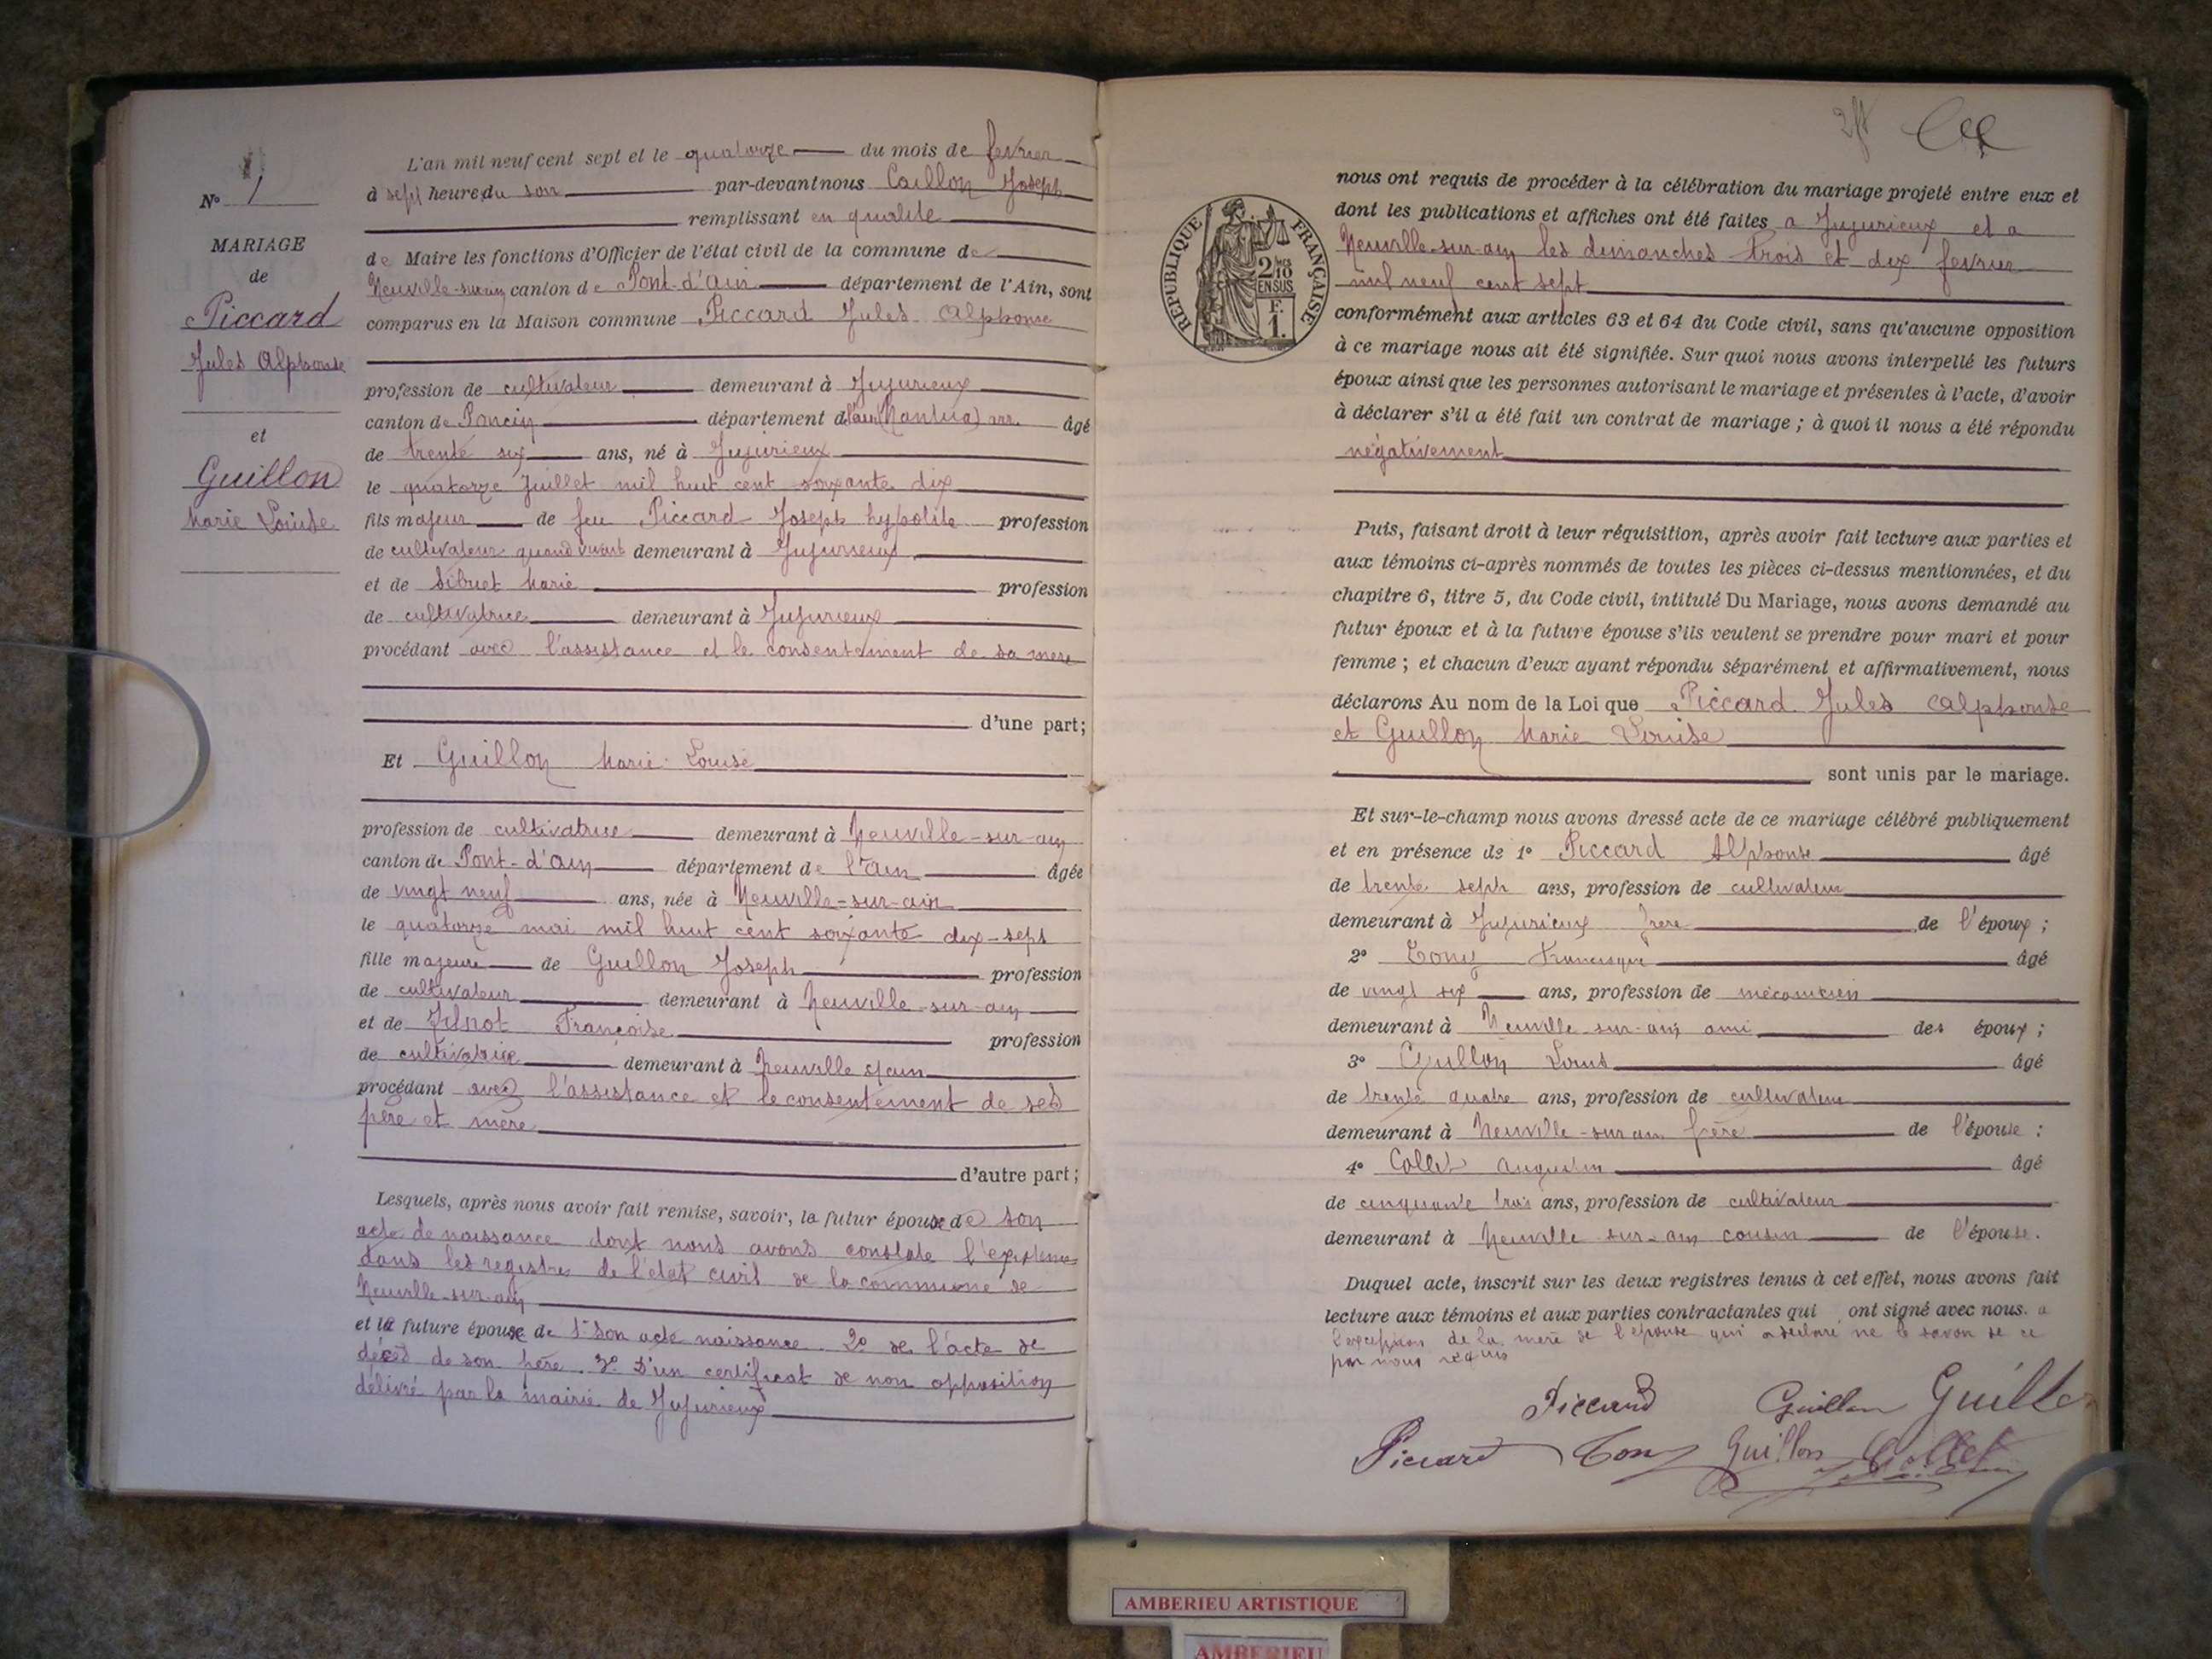 N° 1
MARIAGE
de
Piccard
Jules Alphonse
et
Guillon
Marie Louise
L'an mil neuf cent sept et le quatorze du mois de fevrier
à sept heure du soir par-devant nous Caillon Joseph
remplissant en qualité
de Maire les fonctions d'Officier de l'état civil de la commune de
Neuville-sur-ain canton de Pont-d'ain département de l'Ain, sont
comparus en la Maison commune Piccard Jules Alphonse
profession de cultivateur demeurant à Jujurieux
canton de Poncin département de l'ain (Nantua) arr. âgé
de trente six ans, né à Jujurieux
le quatorze Juillet mil huit cent soixante dix
fils majeur de feu Piccard Joseph hypolite profession
de cultivateur quand vivait demeurant à Jujurieux
et de Sibuet Marie profession
de cultivatrice demeurant à Jujurieux
procédant avec l'assistance et le consentement de sa mere
d'une part;
Et Guillon Marie Louise
profession de cultivatrice demeurant à Neuville-sur-ain
canton de Pont-d'ain département de l'Ain âgée
de vingt neuf ans, née à Neuville-sur-ain
le quatorze mai mil huit cent soixante dix-sept
fille majeure de Guillon Joseph profession
de cultivateur demeurant à Neuville-sur-ain
et de Françoise profession
de cultivatrice demeurant à Neuville s/ain
procédant avec l'assistance et le consentement de ses
père et mère
d'autre part;
Lesquels, après nous avoir fait remise, savoir, la futur épouse de son
acte de naissance dont nous avons constaté l'existence
dans les registres de l'état civil de la commune de
Neuville-sur-ain
et le future épouse de 1° son acte naissance. 2° de l'acte de
décès de son père. 3° D'un certificat de non opposition
délivré par la mairie de Jujurieux
REPUBLIQUE FRANÇAISE
2/10
EN SUS
F.
1.
nous ont requis de procéder à la célébration du mariage projeté entre eux et
dont les publications et affiches ont été faites a Jujurieux et a
Neuville-sur-ain les dimanches trois et dix fevrier
mil neuf cent sept
conformément aux articles 63 et 64 du Code civil, sans qu'aucune opposition
à ce mariage nous ait été signifiée. Sur quoi nous avons interpellé les futurs
époux ainsi que les personnes autorisant le mariage et présentes à l'acte, d'avoir
à déclarer s'il a été fait un contrat de mariage ; à quoi il nous a été répondu
négativement
Puis, faisant droit à leur réquisition, après avoir fait lecture aux parties et
aux témoins ci-après nommés de toutes les pièces ci-dessus mentionnées, et du
chapitre 6, titre 5, du Code civil, intitulé Du Mariage, nous avons demandé au
futur époux et à la future épouse s'ils veulent se prendre pour mari et pour
femme ; et chacun d'eux ayant répondu séparément et affirmativement, nous
déclarons Au nom de la Loi que Piccard Jules Alphonse
et Guillon Marie Louise
sont unis par le mariage.
Et sur-le-champ nous avons dressé acte de ce mariage célébré publiquement
et en présence de 1° Piccard Alphonse âgé
de trente sept ans, profession de cultivateur
demeurant à Jujurieux frere de l'époux ;
2° Tony Francisque âgé
de vingt six ans, profession de mécanicien
demeurant à Neuville-sur-ain ami des époux ;
3° Guillon Louis âgé
de trente quatre ans, profession de cultivateur
demeurant à Neuville-sur ain frère de l'épouse ;
4° Collet âgé
de cinquante trois ans, profession de cultivateur
demeurant à Neuville-sur-ain cousin de l'épouse.
Duquel acte, inscrit sur les deux registres tenus à cet effet, nous avons fait
lecture aux témoins et aux parties contractantes qui ont signé avec nous. a
l'exception de la mère de l'épouse qui a déclaré ne le savoir de ce
par nous requis
Piccard Guillon Guillon
Piccard Tony Guillon Collet
AMBERIEU ARTISTIQUE
AMBERIEU